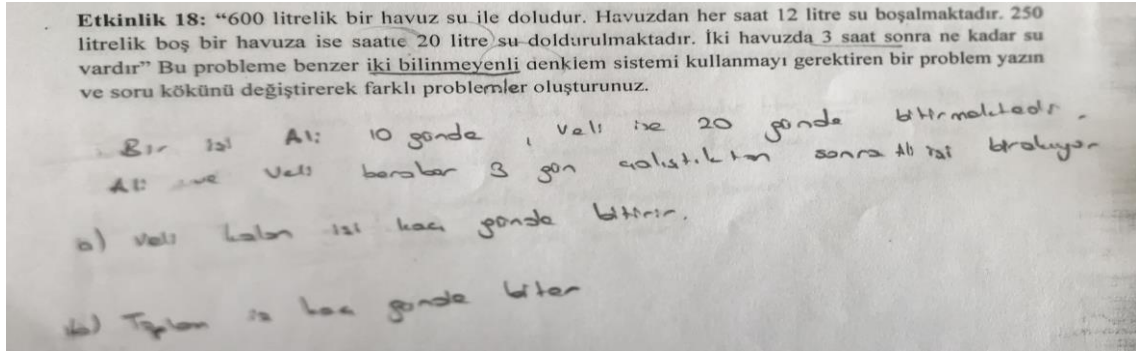 Etkinlik 18: “600 litrelik bir havuz su ile doludur. Havuzdan her saat 12 litre su boşalmaktadır. 250
litrelik boş bir havuza ise saatte 20 litre su doldurulmaktadır. İki havuzda 3 saat sonra ne kadar su
vardır” Bu probleme benzer iki bilinmeyenli denklem sistemi kullanmayı gerektiren bir problem yazın
ve soru kökünü değiştirerek farklı problemler oluşturunuz.
Bir işi Ali 10 günde, Veli ise 20 günde bitirmektedir.
Ali ve Veli beraber 3 gün çalıştıktan sonra Ali işi bırakıyor
a) Veli kalan işi kaç günde bitirir.
b) Toplam iş kaç günde biter